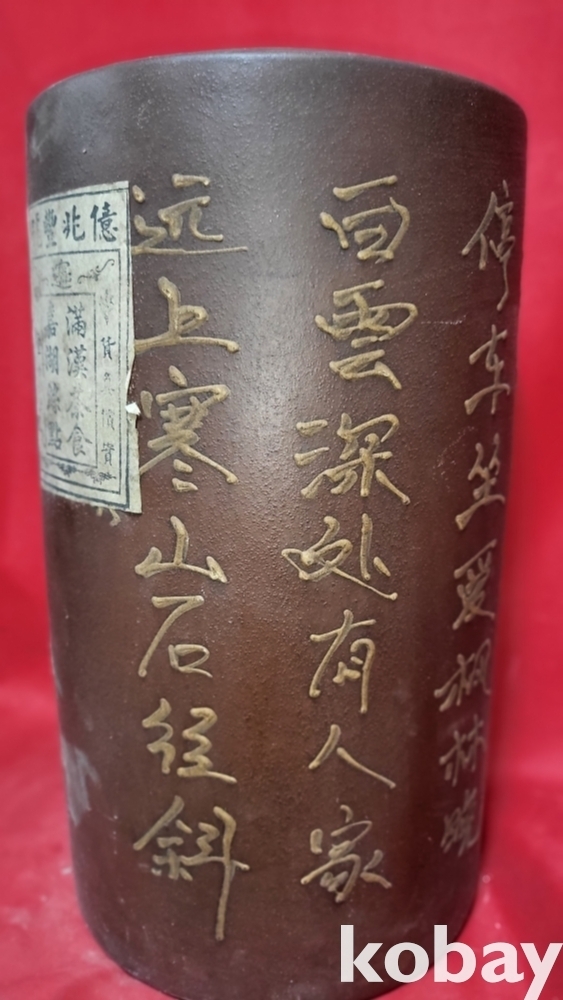 億兆豐
滿漢茶食
嘉湖細點
远上寒山石径斜
白雲深处有人家
停车坐爱枫林晚
kobay